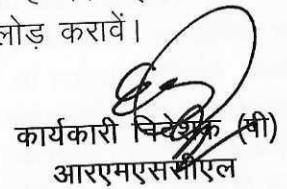 लोड़ करावें।
कार्यकारी निदेशक (वी)
आरएमएससीएल